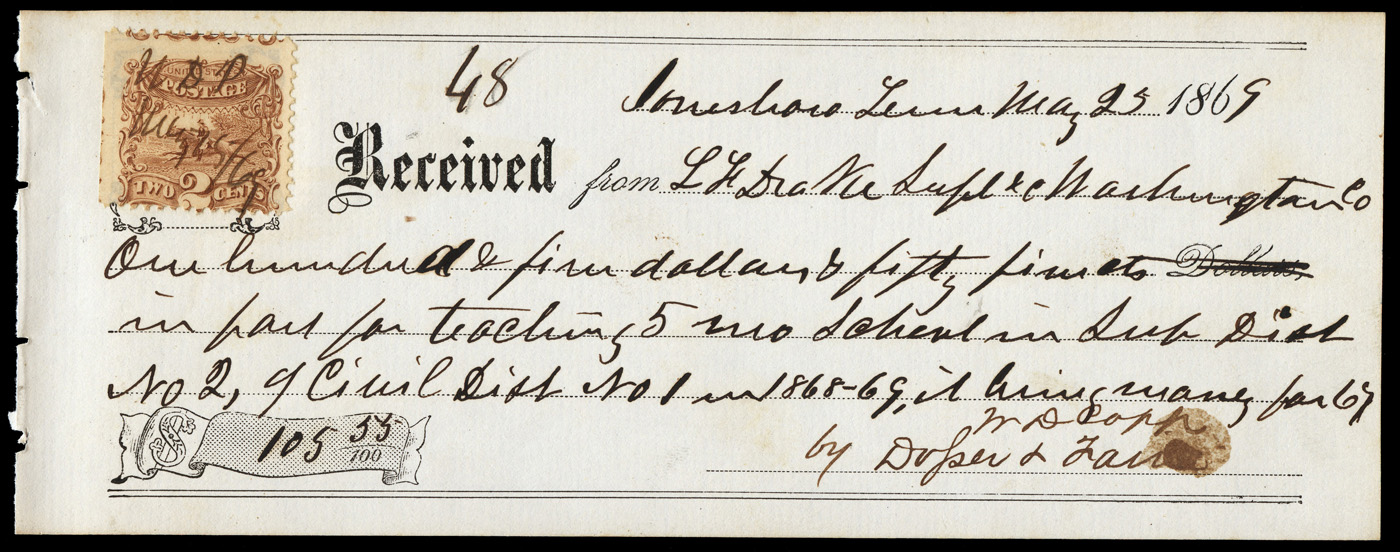 W D P
UNITED STATES
POSTAGE
May
25/69
TWO 2 CENTS
48
Jonesboro Tenn May 25 1869
Received from L F Drake Supt &c Washington Co
One hundred & five dollars & fifty five cts Dollars
in part for teaching 5 mo School in Sub Dist
No 2, of Civil Dist No 1 in 1868-69, it being money for 69
$ 105 55/100
W D Copp
by Dosser &